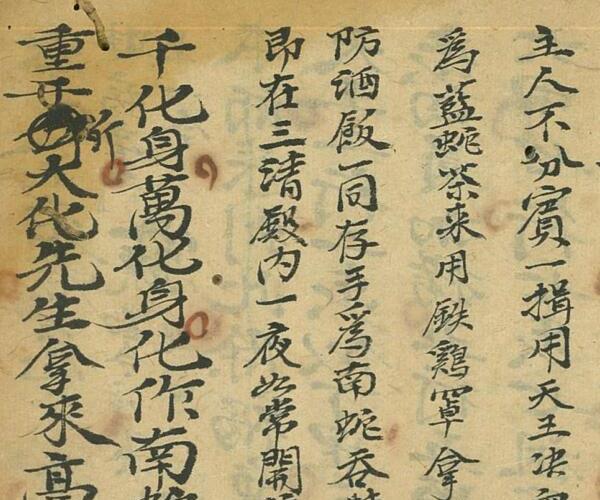 主人不分賓一揖用天王决
為藍蛇茶来用鉄鷄罩拿
防洒飯一同存手為南蛇吞
即在三清殿内一夜如常開
千化身萬化身化作南
重大化先生拿來高